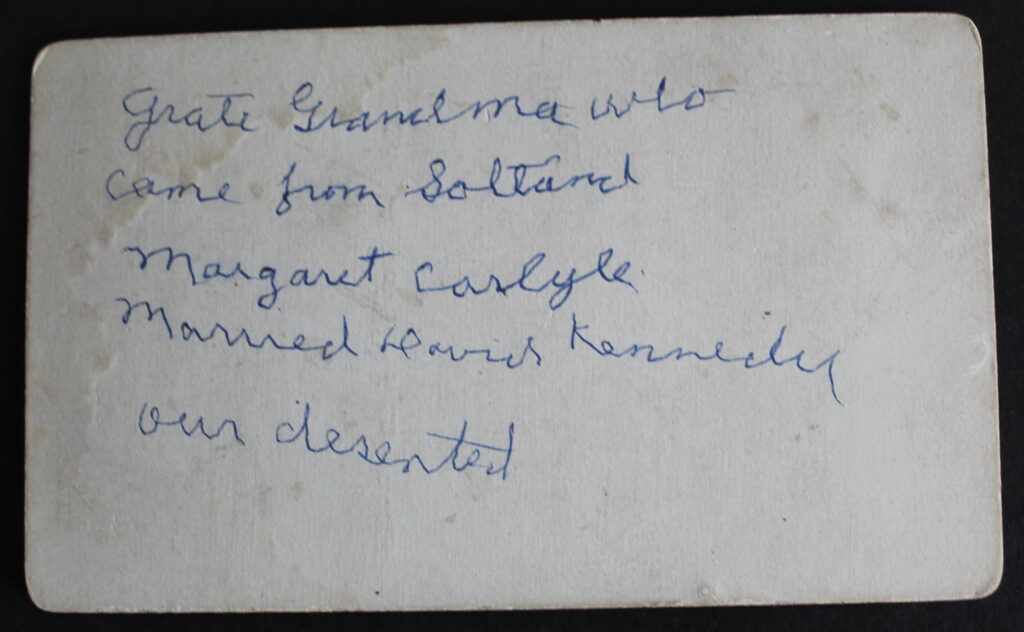 Grate Grandma who
came from Soltand
Margaret Carlyle
Married David Kennedy
our desented